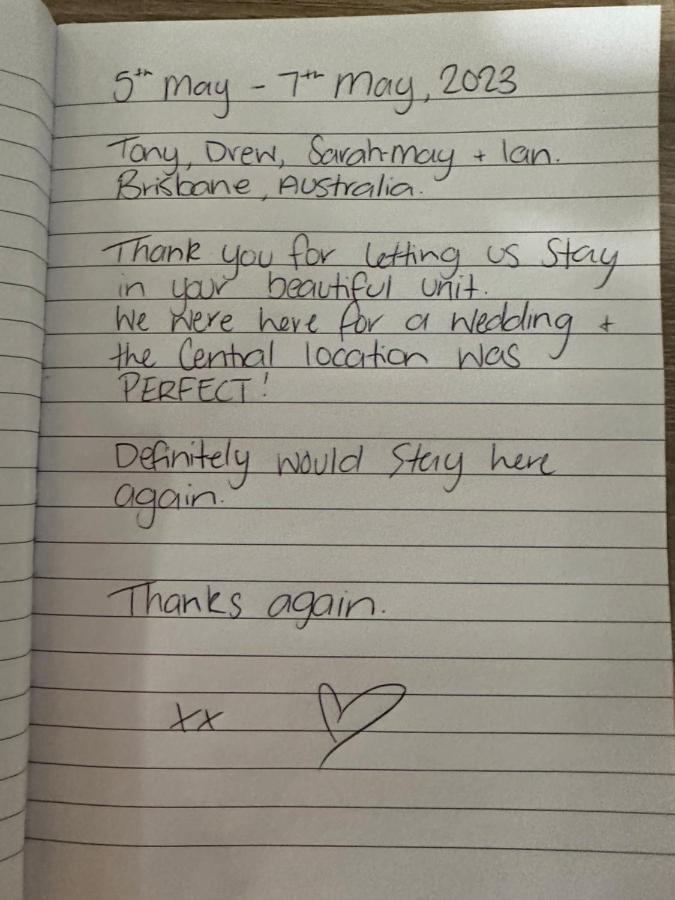 5th May - 7th May, 2023
Tony, Drew, Sarah-May + Ian.
Brisbane, Australia.
Thank you for letting us stay
in your beautiful unit.
We were here for a wedding +
the central location was
PERFECT!
Definitely would stay here
again.
Thanks again.
xx